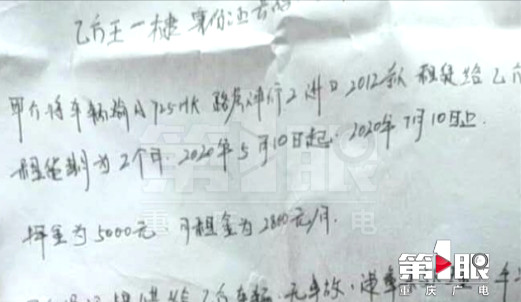 乙方王一棣 身份证号
甲方将车辆渝A925HK 路虎神行2 进口 2012款 租赁给乙方
租赁期为2个月. 2020年5月10日起. 2020年7月10日止.
押金为5000元 月租金为2800元/月.
乙方 车辆 无事故. 违章
第1眼
重庆广电
第1眼
重庆广电